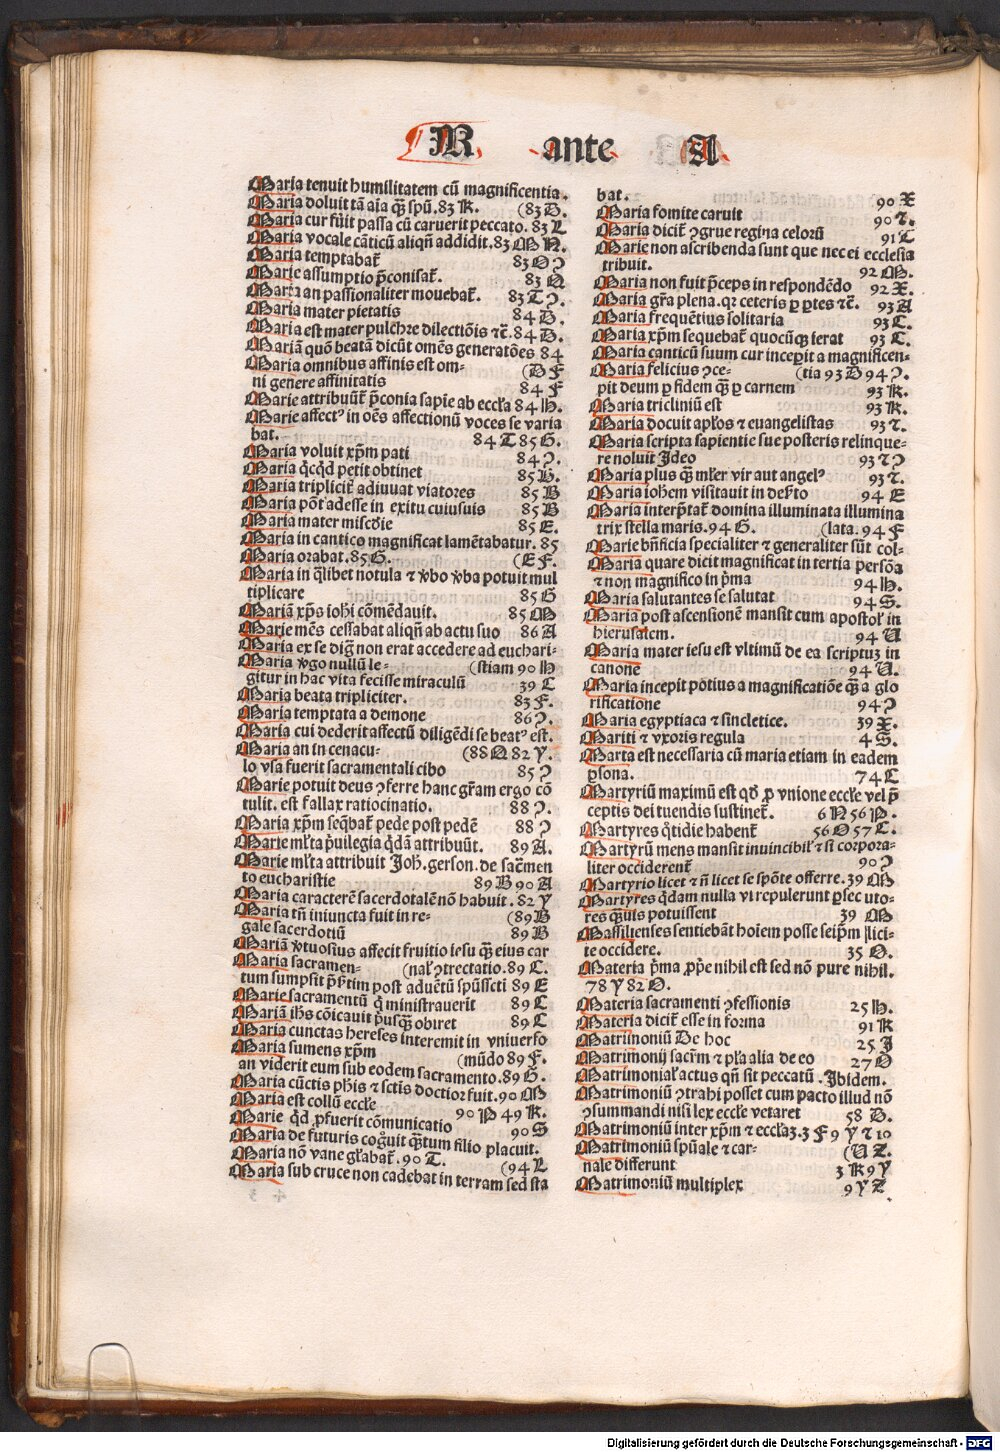 M ante A
Maria tenuit humilitatem cū magnificentia.
Maria doluit tā aīa q̄ȝ spū. 83 K. (83 D.
Maria cur fūit passa cū caruerit peccato. 83 L
Maria vocale cāticū aliqn̄ addidit. 83 M N.
Maria temptabat᷑ 83 O ?
Marie assumptio p̄conisat᷑. 83 Q
Maria an passionaliter mouebat᷑. 83 T ?.
Maria mater pietatis 84 D.
Maria est mater pulchre dilectiōis ⁊c̄. 84 D.
Mariā quō beatā dicūt omēs generatōes 84
Maria omnibus affinis est om- (D F
ni genere affinitatis 84 F
Marie attribuūt᷑ p̄conia sapie ab eccl'a 84 H.
Marie affectꝰ in oēs affectionū voces se varia
bat. 84 T 85 G.
Maria voluit xp̄m pati 84 ?.
Maria q̇cq̇d petit obtinet 85 H.
Maria triplicit᷑ adiuuat viatores 85 B
Maria pōt adesse in exitu cuiusuis 85 B
Maria mater mis̄c̄die 85 E.
Maria in cantico magnificat lamētabatur. 85
Maria orabat. 85 G. (E F.
Maria in q̄libet notula ⁊ v̄bo v̄ba potuit mul
tiplicare 85 G
Mariā xp̄s iohi cōmēdauit. 85 M
Marie mēs cessabat aliqn̄ ab actu suo 86 A
Maria ex se diḡ non erat accedere ad euchari-
Maria v̄go nullū le- (stiam 90 H
gitur in hac vita fecisse miraculū 39 C
Maria beata tripliciter. 83 F.
Maria temptata a demone 86 ?.
Maria cui dederit affectū diligēdi se beatꝰ est.
Maria an in cenacu- (88 Q 82 Y.
lo vsa fuerit sacramentali cibo 85 ?
Marie potuit deus ꝯferre hanc gr̄am ergo cō
tulit. est fallax ratiocinatio. 88 ?.
Maria xp̄m seq̄bat᷑ pede post pedē 88 ?
Marie ml'ta p̄uilegia q̄dā attribuūt. 89 A.
Marie ml'ta attribuit Joh. gerson. de sac̄men
to eucharistie 89 B 90 A
Maria caracterē sacerdotalē nō habuit. 82 Y
Maria tn̄ iniuncta fuit in re- (89 B
gale sacerdotiū 89 B
Mariā v̄tuosius affecit fruitio iesu q̄ȝ eius car
Maria sacramen- (nal' ꝯtrectatio. 89 C.
tum sumpsit p̄s̄tim post aduētū spūssc̄ti 89 E
Marie sacramentū q̇ ministrauerit 89 C
Mariā ihs cōicauit p̄usq̄ȝ obiret 89 C
Maria cunctas hereses interemit in vniuerso
Maria sumens xp̄m (mūdo 89 F.
an viderit eum sub eodem sacramento. 89 G.
Maria cūctis phis ⁊ sctis doctior fuit. 90 M
Maria est collū eccl'e 90 P 49 K.
Marie q̇d ꝓfuerit cōmunicatio 90 S
Maria de futuris cog̊uit q̄ȝtum filio placuit.
Maria nō vane gl'abat᷑. 90 T. (94 L
Maria sub cruce non cadebat in terram sed sta
bat. 90 X
Maria fomite caruit 90 ⁊.
Maria dicit᷑ ꝯgrue regina celorū 91 C
Marie non ascribenda sunt que nec ei ecclesia
tribuit. 92 M.
Maria non fuit p̄ceps in respondēdo 92 X.
Maria gr̄a plena. qr ceteris ꝑ ꝑtes ⁊c̄. 93 A
Maria frequētius solitaria 93 C.
Maria xp̄m sequebat᷑ quocūqȝ ierat 93 C.
Maria canticū suum cur incepit a magnificen-
Maria felicius ꝯce- (tia 93 D 94 ?.
pit deum ꝑ fidem q̄ȝ ꝑ carnem 93 K.
Maria tricliniū est 93 K.
Maria docuit apl'os ⁊ euangelistas 93 ⁊.
Maria scripta sapientie sue posteris relinque-
re noluit Ideo 93 ⁊ ?
Maria plus q̄ȝ ml'er vir aut angelꝰ 93 ⁊.
Maria iohem visitauit in des̄to 94 E
Maria interp̄tat᷑ domina illuminata illumina
trix stella maris. 94 G. (lata. 94 F
Marie bn̄ficia specialiter ⁊ generaliter sūt col-
Maria quare dicit magnificat in tertia persōa
⁊ non magnifico in p̄ma 94 H.
Maria salutantes se salutat 94 S.
Maria post ascensionē mansit cum apostol' in
hierusalem. 94 U
Maria mater iesu est vltimū de ea scriptuȝ in
canone 94 U.
Maria incepit pōtius a magnificatiōe q̄ȝ a glo
rificatione 94 ?
Maria egyptiaca ⁊ sincletice. 39 X.
Mariti ⁊ vxoris regula 4 S.
Marta est necessaria cū maria etiam in eadem
ꝑsona. 74 C
Martyriū maximū est qd̄ ꝓ vnione eccl'e vel p̄
ceptis dei tuendis sustinet᷑. 6 N 56 P.
Martyres q̇tidie habent᷑ 56 O 57 C.
Martyrū mens mansit inuincibil' ⁊ si corpora-
liter occiderent᷑ 90 ?
Martyrio licet ⁊ n̄ licet se spōte offerre. 39 M
Martyres q̇dam nulla vi repulerunt ꝑsecuto-
res q̄ȝuis potuissent 39 M
Massilienses sentiebāt hoiem posse seip̄m lici-
te occidere. 35 O.
Materia p̄ma ꝓp̄e nihil est sed nō pure nihil.
78 Y 82 O.
Materia sacramenti ꝯfessionis 25 H.
Materia dicit᷑ esse in forma 91 K
Matrimoniū De hoc 25 I
Matrimonij sacr̄m ⁊ pl'a alia de eo 27 O
Matrimonial' actus qn̄ sit peccatū. Ibidem.
Matrimoniū ꝯtrahi posset cum pacto illud nō
ꝯsummandi nisi lex eccl'e vetaret 58 D.
Matrimoniū inter xp̄m ⁊ eccl'aȝ. 3 F 9 Y ⁊ 10
Matrimoniū spūale ⁊ car- (U Z.
nale differunt 3 K 9 Y
Matrimoniū multiplex 9 Y Z.
Digitalisierung gefördert durch die Deutsche Forschungsgemeinschaft - DFG